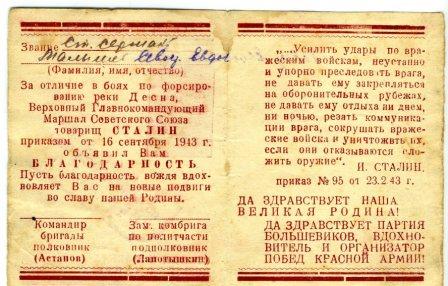 Звание Ст. сержант
(Фамилия, имя, отчество)
За отличие в боях по форсиро-
ванию реки Десна,
Верховный Главнокомандующий
Маршал Советского Союза
товарищ СТАЛИН
приказом от 16 сентября 1943 г.
объявил Вам
БЛАГОДАРНОСТЬ
Пусть благодарность вождя вдох-
новляет Вас на новые подвиги
во славу нашей Родины.
Командир
бригады
полковник
(Асланов)
Зам. комбрига
по политчасти
подполковник
(Лапотышкин)
„...Усилить удары по вра-
жеским войскам, неустанно
и упорно преследовать врага,
не давать ему закрепляться
на оборонительных рубежах,
не давать ему отдыха ни днем,
ни ночью, резать коммуника-
ции врага, сокрушать враже-
ские войска и уничтожить их,
если они отказываются сло-
жить оружие".
И. СТАЛИН,
приказ № 95 от 23.2.43 г.
ДА ЗДРАВСТВУЕТ НАША
ВЕЛИКАЯ РОДИНА!
ДА ЗДРАВСТВУЕТ ПАРТИЯ
БОЛЬШЕВИКОВ, ВДОХНО-
ВИТЕЛЬ и ОРГАНИЗАТОР
ПОБЕД КРАСНОЙ АРМИИ!